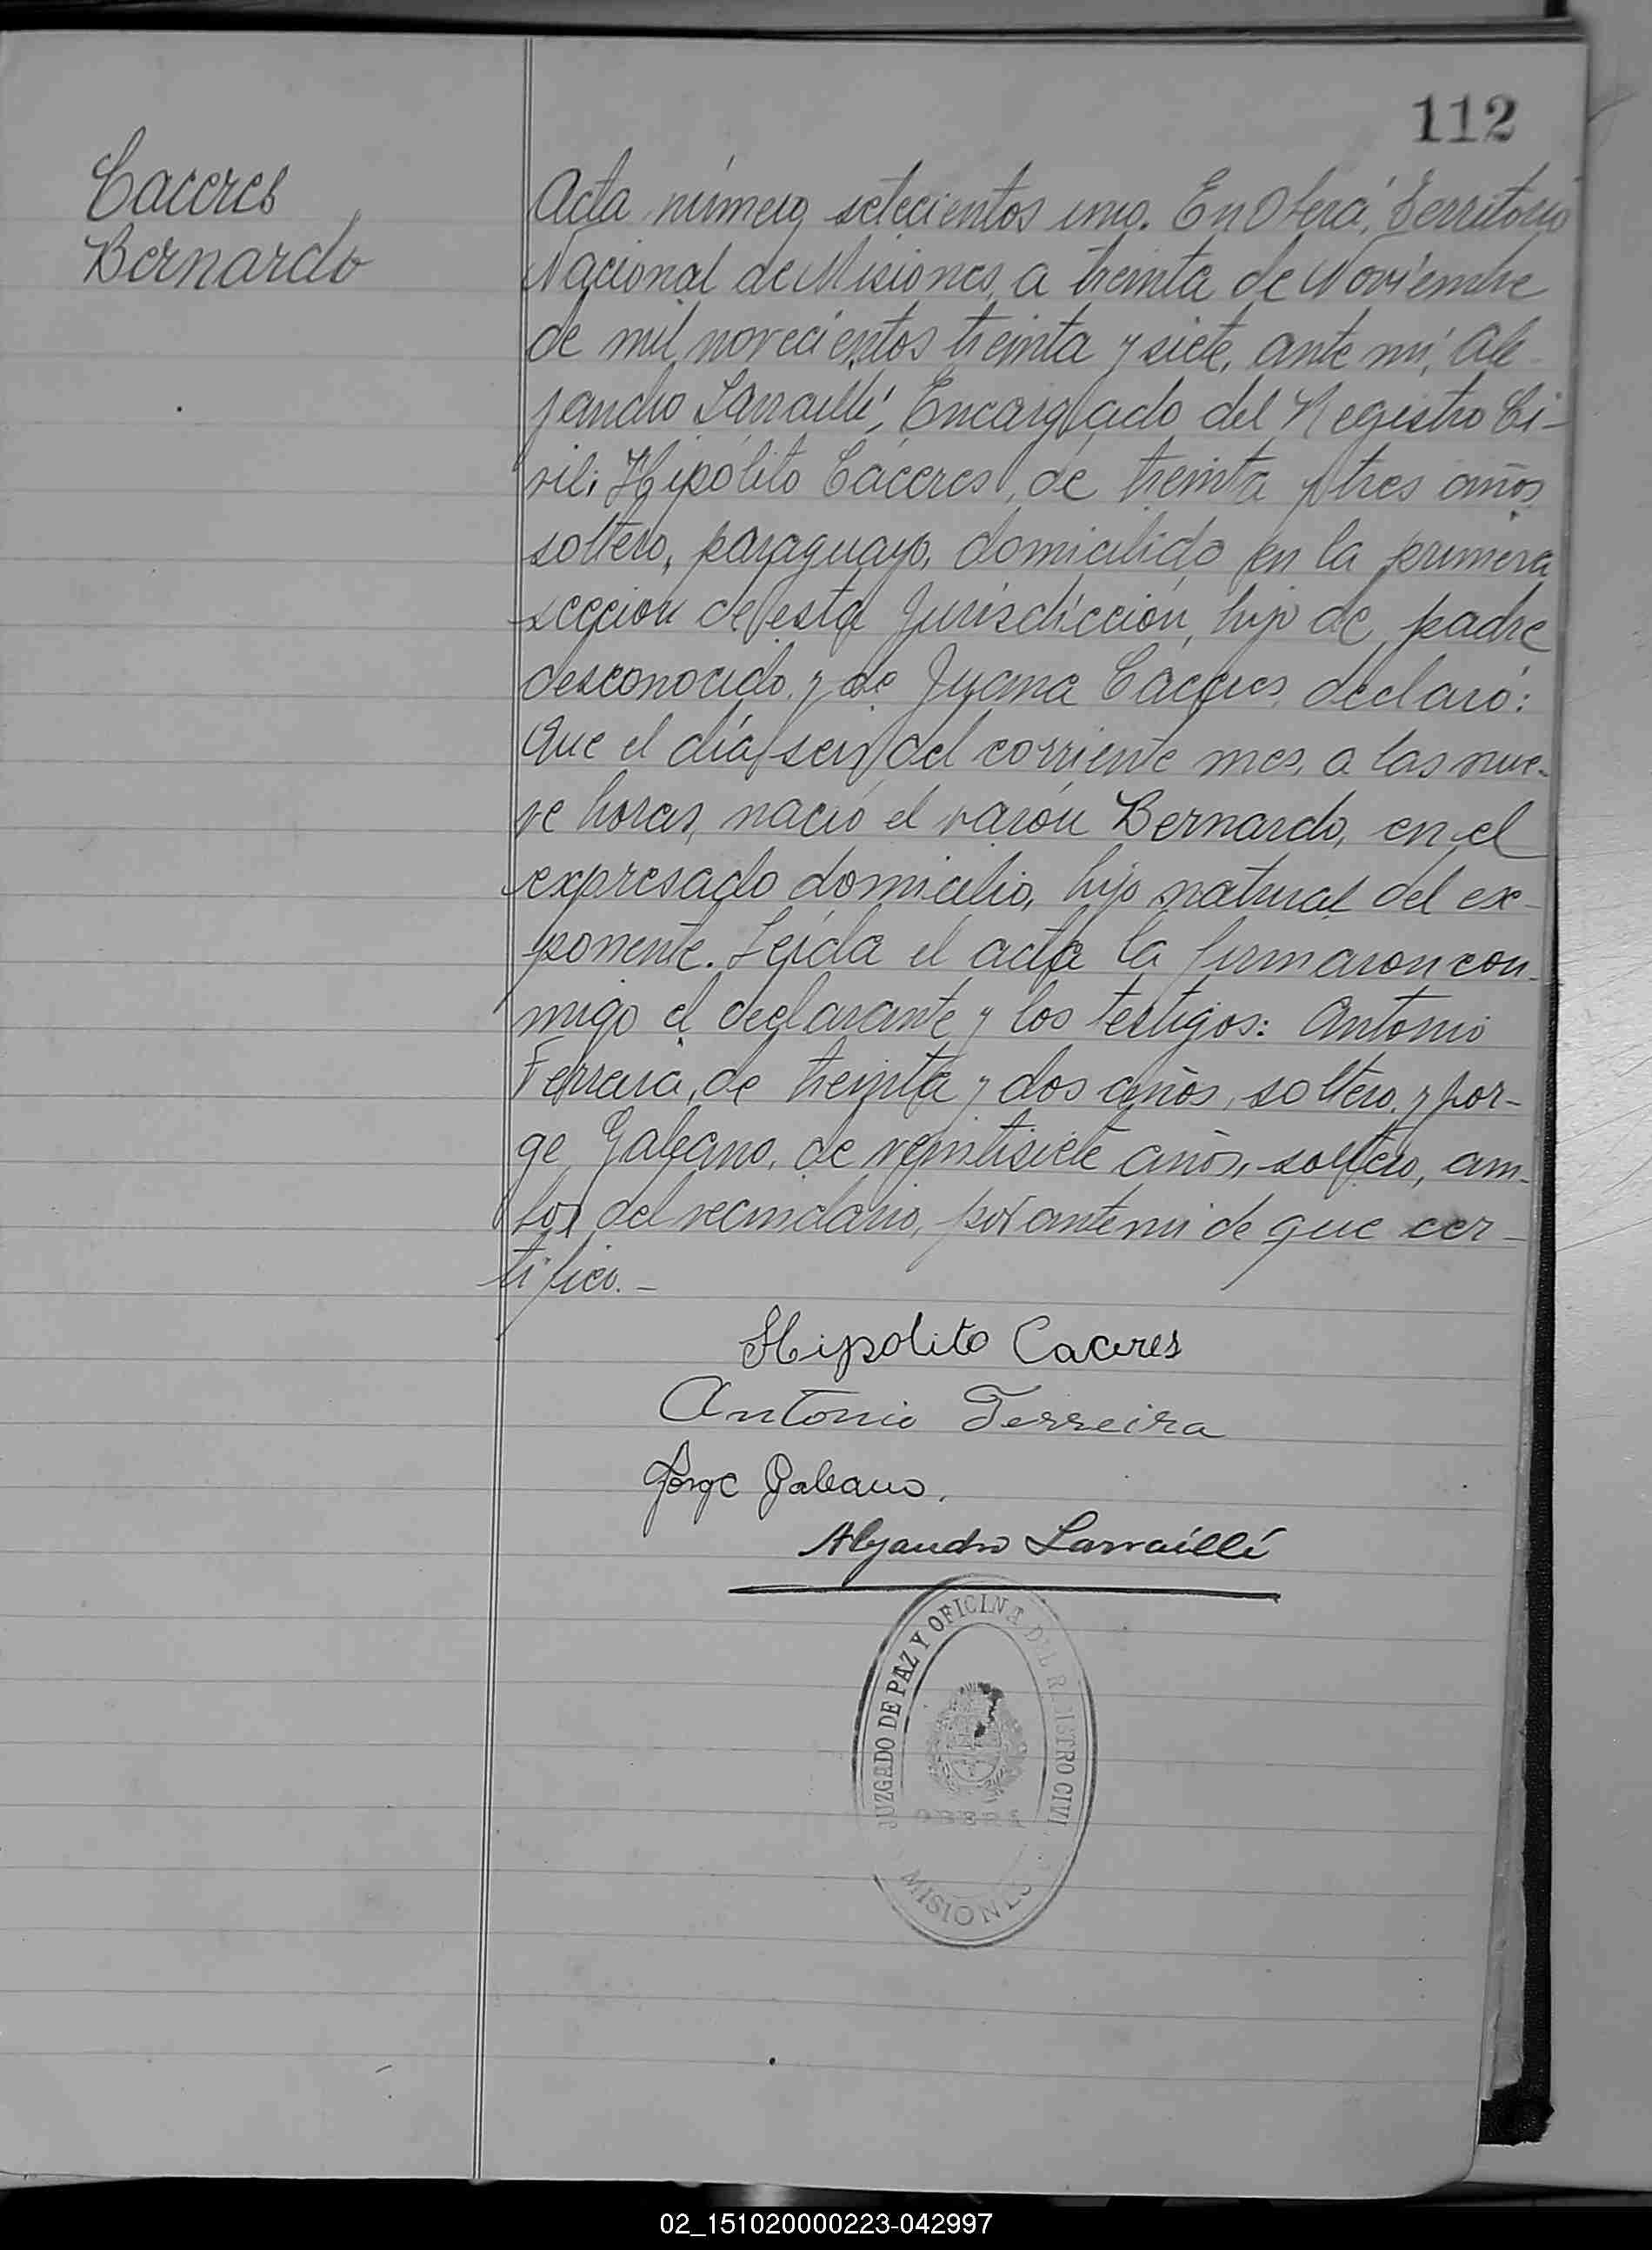 112
Caceres
Bernardo
Acta número setecientos uno. En Oberá, Territorio
Nacional de Misiones, a treinta de Noviembre
de mil novecientos treinta y siete, ante mí, Ale-
jandro Larraillí, Encargado del Registro Ci-
vil; Hipólito Cáceres, de treinta y tres años,
soltero, paraguayo, domicilido en la primera
seccion de esta Jurisdicción, hijo de padre
desconocido y de Juana Cáceres, declaró:
Que el día seis del corriente mes, a las nue-
ve horas, nació el varón Bernardo, en el
expresado domicilio, hijo natural del ex-
ponente. Leida el acta la firmaron con-
migo el declarante y los testigos: Antonio
Ferreira, de treinta y dos años, soltero, y Jor-
ge Galeano, de veintisiete años, soltero, am-
bos del vecindario, por ante mi de que cer-
tifico.-
Hipolito Caceres
Antonio Ferreira
Jorge Galeano.
Alejandro Larraillí
JUZGADO DE PAZ Y OFICINA DEL REGISTRO CIVIL
OBERA
MISIONES
02_151020000223-042997